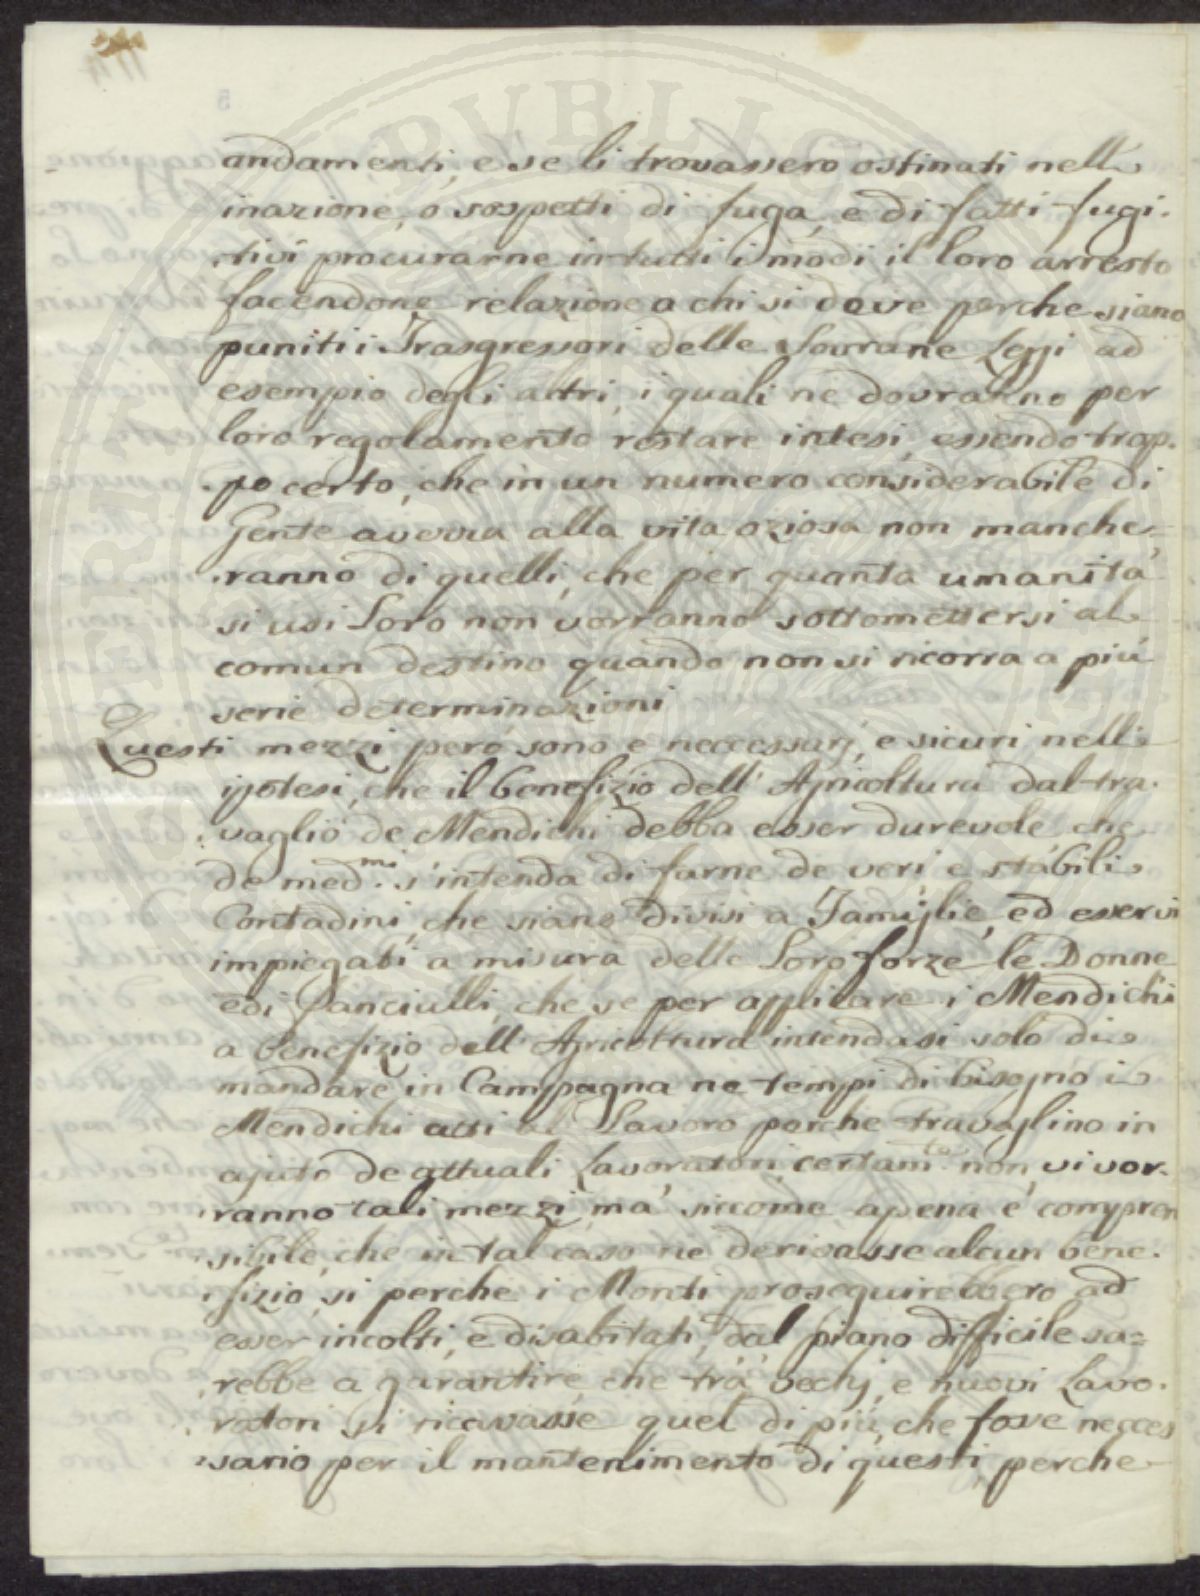 andamenti, e se li trovassero ostinati nell'
inazione, o sospetti di fuga, e di fatti fugi-
tivi procurarne in tutti i modi il loro arresto
facendone relazione a chi si deve perche siano
puniti i Trasgressori delle Sovrane Leggi ad
esempio degli altri, i quali ne dovranno per
loro regolamento restare intesi, essendo trop-
po certo, che in un numero considerabile di
Gente avezza alla vita oziosa non manche=
ranno di quelli, che per quanta umanità
si usi Loro non vorranno sottomettersi al
comun destino quando non si ricorra a più
serie determinazioni
Questi mezzi però sono e neccessarj, e sicuri nell'
ipotesi, che il benefizio dell' Agricoltura dal tra-
vaglio de Mendichi debba esser durevole, che
de med.mi s'intenda di farne de veri e stabili
Contadini, che siano divisi a Famiglie, ed esservi
impiegati a misura delle Loro forze le Donne
ed i Fanciulli, che se per applicare i Mendichi
a benefizio dell' Agricoltura intendasi solo di
mandare in Campagna ne tempi di bisogno i
Mendichi atti al Lavoro perche travaglino in
ajuto de attuali Lavoratori, certam.te non vi vor-
ranno tali mezzi, ma siccome apena è compren
sibile, che in tal caso ne derivasse alcun bene-
fizio, si perche i Monti proseguirebbero ad
esser incolti, e disabitati, dal piano difficile sa=
rebbe a garantire, che trà vechj, e nuovi Lavo-
ratori si ricavasse quel di più, che fosse necces
sario per il mantenimento di questi, perche
PUBLICA